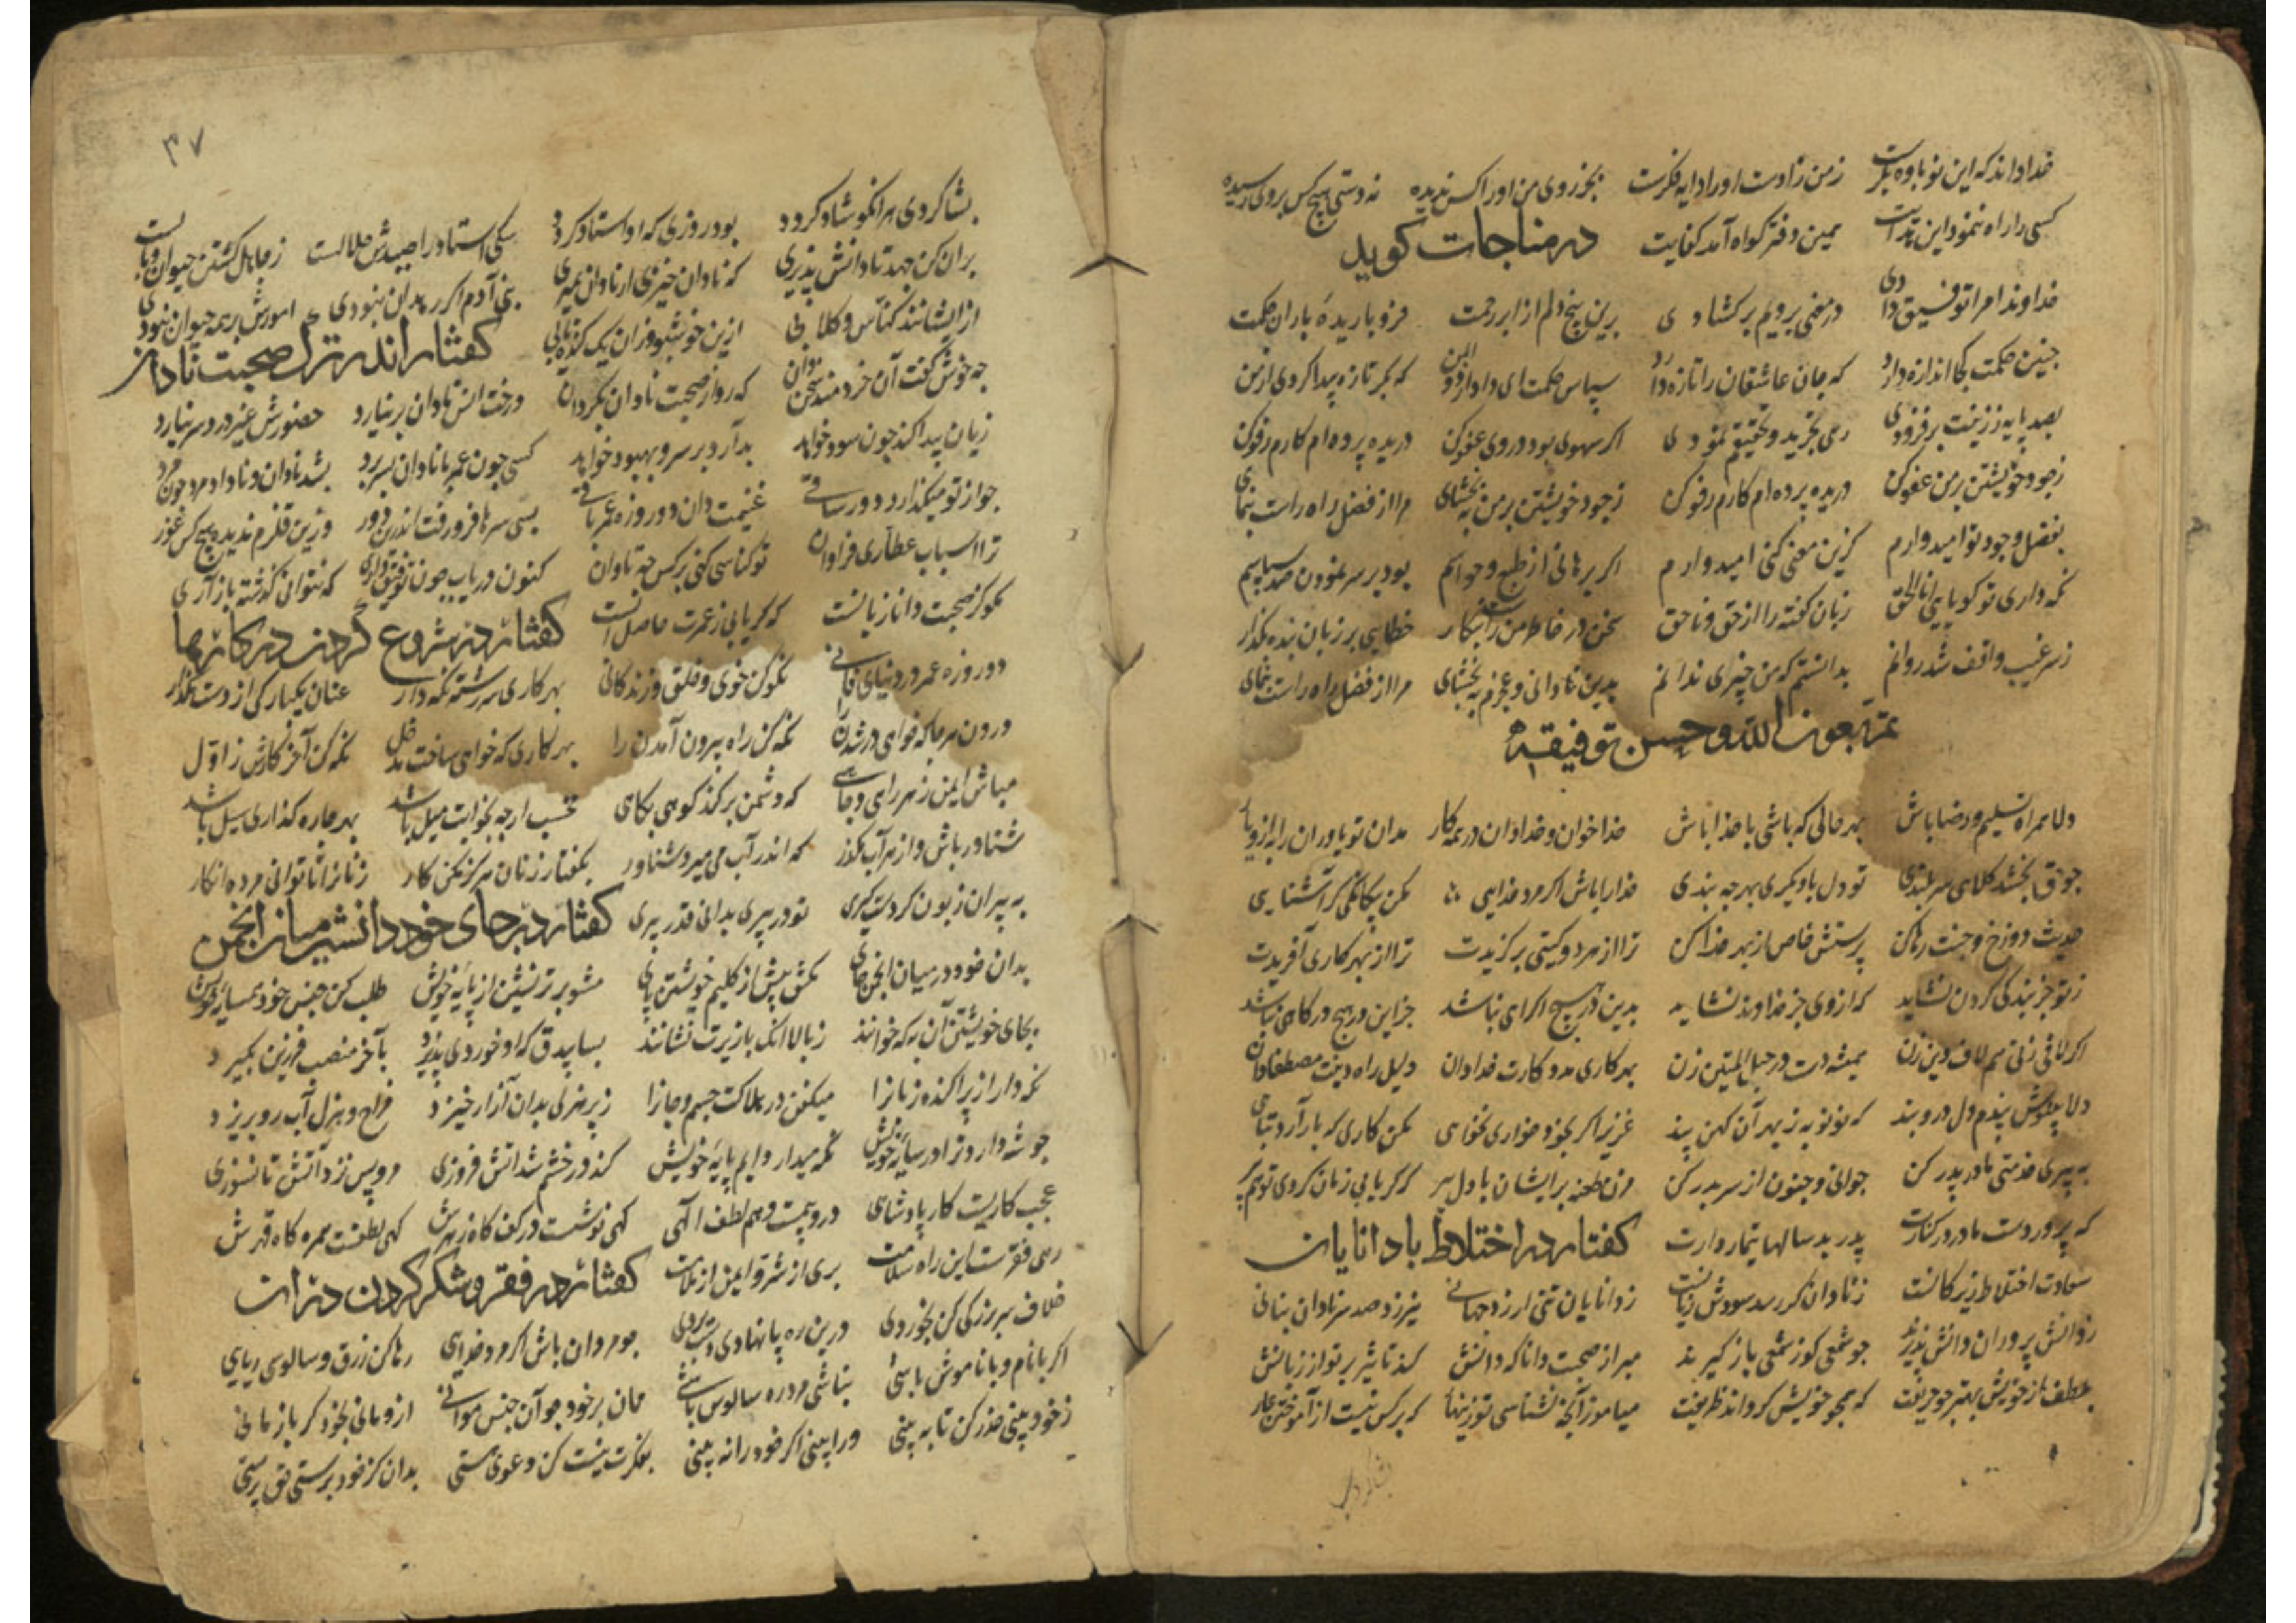 خداداند که این نوباوه بکرست زمن زادست اورا دایه فکرست بجز روی من اورا کس ندیده نه دستی هیچ کس بروی رسیده
کسی را راه ننمود این همین دفتر کواه آمد کفایت در مناجات کوید
خداوندا مرا توفیق دادی در معنی برویم برکشادی برین پنج دلم از ابر رحمت فرو باریدهٔ باران حکمت
چنین حکمت کجا اندازه دارد که جان عاشقان را تازه دارد سپاس حکمت ای دادار ذوالمن که بکر تازه پیدا کردی از من
بصد پایه ززینت برفزودی رهی تجرید و تحقیقم نمودی اکر سهوی بود دروی عفوکن دریده پرده ام کارم رفوکن
زجود خویشتن بر من عفوکن دریده پرده ام کارم رفوکن زجود خویشتن بر من ببخشای مرا از فضل راه راست بنمای
بفضل وجود تو امیدوارم کزین معنی کنی امیدوارم اکر برهانی از طبع و حواسم بود بر سر نمودن صد سپاسم
نکه داری تو کویایی انا الحق زبان کفته را از حق و ناحق سخن در خاطر من راست بنکار خطایی بر زبان بنده مکذار
زسر غیب واقف شد روانم بدانستم که من چیزی ندانم بدین نادانی و عجزم ببخشای مرا از فضل راه راست بنمای
تمت بعون الله و حسن توفیقه
دلا همراه تسلیم و رضا باش بهر حالی که باشی با خدا باش خدا خوان و خدا دان در همه کار مدان تو یاوران را به ازو یار
چو حق بخشد کلاهی سر بلندی تو دل با دیکری بهر چه بندی خدا را باش اکر مرد خدایی مکن بیکانکی کر آشنایی
حدیث دوزخ و جنت رها کن پرستش خاص از بهر خدا کن ترا از هر دو کیتی برکزیدست ترا از بهر کاری آفریدست
زتو جز بندکی کردن نشاید که ازوی جز خداوندی نشاید بدین در هیچ اکراهی نباشد جز این در هیچ درکاهی نباشد
اکر لافی زنی هم لاف دین زن همیشه دست در حبل المتین زن بهر کاری مددکارت خدا دان دلیل راه دینت مصطفا دان
دلا بنیوش پندم دل درو بند که نو نو به زبهر آن کهن پند عزیز اکر بخود خواری نخواهی مکن کاری که بار آرد تباهی
به پیری خدمتی مادر پدر کن جوانی و جنون از سر بدر کن مزن طعنه بر ایشان با دل پیر کر یابی زمان کردی تو هم پیر
که پرورد ست مادر در کنارت پدر بد سالها تیمار دارت کفتار در اختلاط با دانایان
سعادت اختلاط زیرکانست زنادان کر رسد سودش زیانست زدانایان تنی ارزد جهانی نیرزد صد سر نادان بنانی
زدانش پروران دانش پذیرند چو شمعی کوز شمعی باز کیرند مبر از صحبت دانا که دانش کند تاثیر بر تو از زبانش
بلطف از خویش بهتر جو حریفت که همچو خویش کرداند ظریفت میاموز آنچه نشناسی تو زنهار که بر کس نیست از آموختن عار
بشاکردی
۳۷
بشاکردی هر آنکو شاد کردد بود روزی که او استاد کردد سکی استاد را صیدش حلالست زجاهل کشتن حیوان وبالست
بران کن جهد تا دانش پذیری که نادان خیزی ار نادان بمیری بنی آدم اکر بدان نبودی امورش بر همه حیوان نبودی
ازایشانند کناس و کلابی ازین خوشبو وزان یک کنده یابی کفتار اندر ترک صحبت نادان
چه خوش کفت آن خردمند سخن دان که رو از صحبت نادان بکردان درخت انس نادان بر نیارد حضورش غیر درد سر نیارد
زیان پیدا کند چون سود خواهد بد آرد بر سرو بهبود خواهد کسی چون عمر با نادان بسر برد بشد نادان و نادان مرد چون مرد
چو از تو میکذارد دور ساقی غنیمت دان دو روزه عمر باقی بسی سرها فرو رفت اندرین دور وزین قلزم ندیده هیچ کس غور
ترا اسباب عطاری فراوان تو کناسی کنی برکس چه تاوان کنون دریاب چون توفیق داری که نتوانی کذشته باز آری
نکو کز صحبت دانا زیانست که کر یابی زعمرت حاصل آنست کفتار در شروع کردن در کارها
دو روزه عمر در دنیای فانی نکو کن خوی و خلق و زندکانی بهر کاری سر رشته نکه دار عنان یکبارکی از دست مکذار
درون هر جا که خواهی در شدن را نکه کن راه بیرون آمدن را بهر کاری که خواهی ساخت مدخل نکه کن آخر کارش زاول
مباش ایمن زهر راهی و چاهی که دشمن برکند کوهی بکاهی مخسب ارچه بخوابت میل باشد بهر جا ره کذاری سیل باشد
شناور باش و از هر آب مکذر که اندر آب می میرد شناور بکفتار زنان هرکز مکن کار زنانرا تا توانی مرده انکار
به پیران زبون کردست کیری تو در پیری بدانی قدر پیری کفتار در جای خود دانستن میان انجمن
بدان خود در میان انجمن جای مکش بیش از کلیم خویشتن پای مشو برتر نشین از پایهٔ خویش طلب کن جنس خود همسایهٔ خویش
بجای خویشتن آن به که خوانند زبالا آنک بازیرت نشانند بسا بیدق که او خوردی پذیرد بآخر منصب فرزین بکیرد
نکه دار از پراکنده زبانرا میفکن در هلاکت جسم و جانرا زپر هزلی بدان آزار خیزد مزاح و هزل آب رو بریزد
چو شه دارد ترا در سایهٔ خویش نکه میدار دایم پایهٔ خویش کند در خشم شد آتش فروزی مرو پس نزد آتش تا نسوزی
عجب کاریست کار پادشاهی درو نیست و هم لطف الهی کهی نوشست در کف کاه زهرش کهی لطفست همره کاه قهرش
رهی فقرست این راه سلامت بری از شر و ایمن از ملامت کفتار در فقر و شکر کردن در آن
خلاف سر بزرکی کن بخوردی درین ره پا نهادی دست بردی چو مردان باش اکر مرد خدایی رها کن زرق و سالوسی ریایی
اکر با نام و با ناموش باشی نباشی مرد ره سالوس باشی ممان بر خود چو آن جنس موانی ازو مانی بخود کر باز مانی
زخود بینی حذر کن تا به بینی ورا بینی اکر خود را نه بینی بفکرت نیست کن دعوی هستی بدان کز خود پرستی حق پرستی